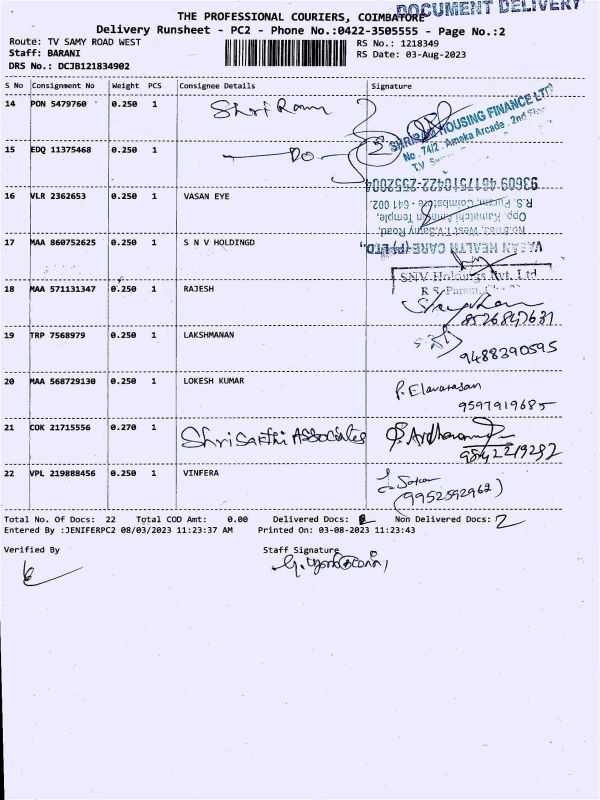 DOCUMENT DELIVERY
THE PROFESSIONAL COURIERS, COIMBATORE
Delivery Runsheet - PC2 - Phone No.:0422-3505555 - Page No.:2
Route: TV SAMY ROAD WEST
RS No.: 1218349
Staff: BARANI
RS Date: 03-Aug-2023
DRS No.: DCJB121834902
S No Consignment No Weight PCS Consignee Details Signature
14 PON 5479760 0.250 1 Shri Ram
SHRIRAM HOUSING FINANCE LTD
No. 74/2 - Amaka Arcade, 2nd
T.V
15 EDQ 11375468 0.250 1 Do
93609 46175
0422-2552004
16 VLR 2362653 0.250 1 VASAN EYE
R.S. Puram, Coimbatore - 641 002.
Opp. Kamatchi Amman Temple,
West T.V. Samy Road,
17 MAA 860752625 0.250 1 S N V HOLDINGD
VASAN HEALTH CARE (P) LTD.,
SNV Holdings Pvt. Ltd
R S Puram,
18 MAA 571131347 0.250 1 RAJESH
8526847631
19 TRP 7568979 0.250 1 LAKSHMANAN
9488390595
20 MAA 568729130 0.250 1 LOKESH KUMAR
P. Elavarasan
9597919685
21 COK 21715556 0.270 1 Shri Sakthi Associates
9842219282
22 VPL 219888456 0.250 1 VINFERA
(9952592962)
Total No. Of Docs: 22 Total COD Amt: 0.00 Delivered Docs: Non Delivered Docs: 2
Entered By :JENIFERPC2 08/03/2023 11:23:37 AM Printed On: 03-08-2023 11:23:43
Verified By
Staff Signature